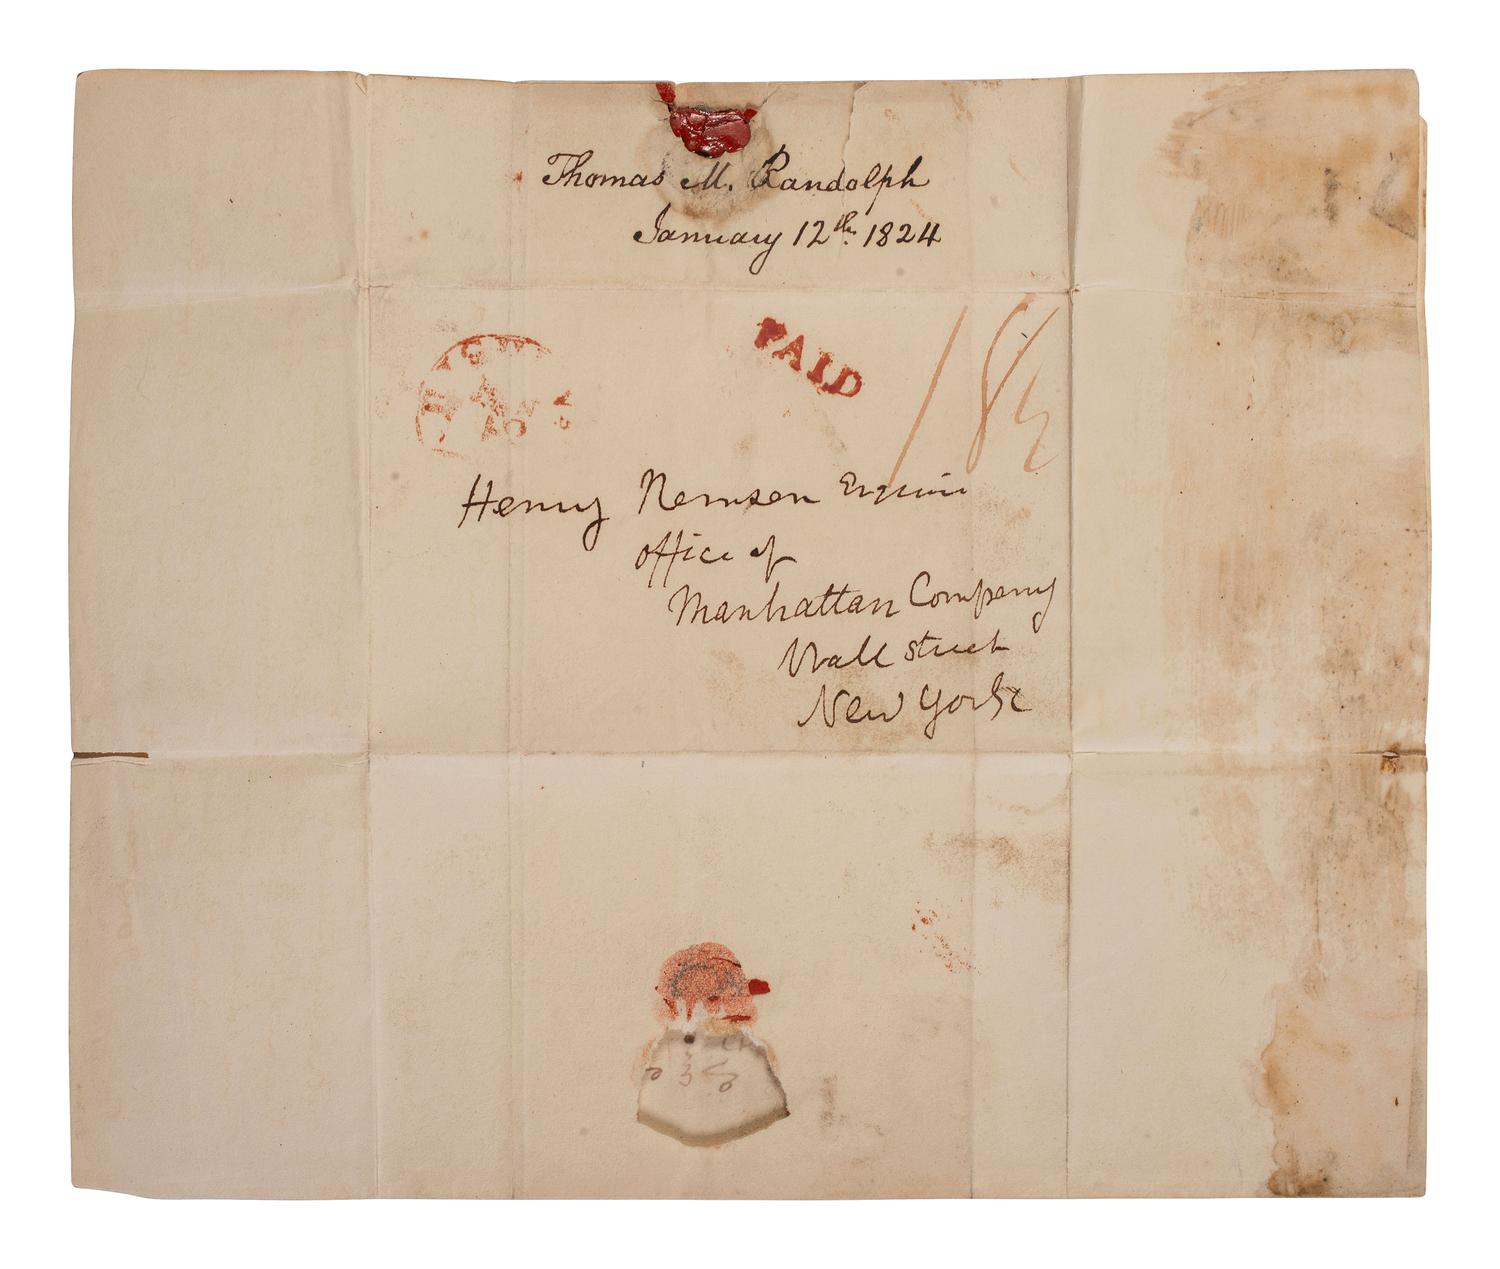 Thomas M. Randolph
January 12th. 1824
PAID
18½
Henry Remsen Esquire
office of
Manhattan Company
Wall street
New York